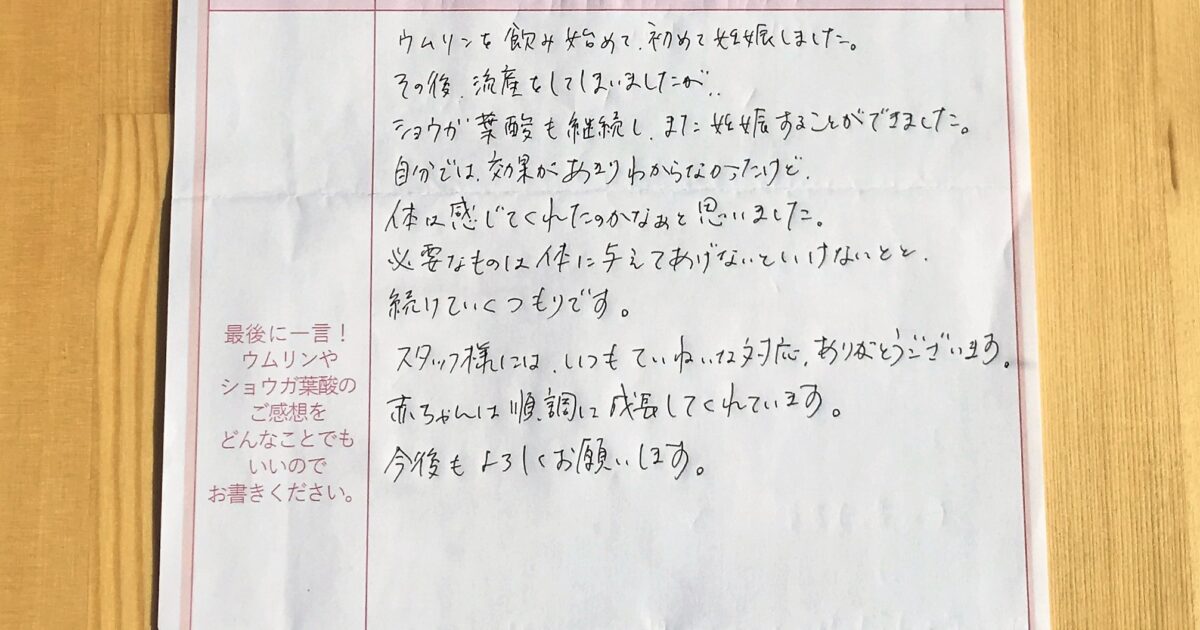 最後に一言！
ウムリンや
ショウガ葉酸の
ご感想を
どんなことでも
いいので
お書きください。
ウムリンを飲み始めて、初めて妊娠しました。
その後、流産をしてしまいましたが、
ショウガ葉酸も継続し、また妊娠することができました。
自分では、効果があまりわからなかったけど、
体は感じてくれたのかなぁと思いました。
必要なものは体に与えてあげないといけないとと、
続けていくつもりです。
スタッフ様には、いつもていねいな対応、ありがとうございます。
赤ちゃんは順調に成長してくれています。
今後もよろしくお願いします。